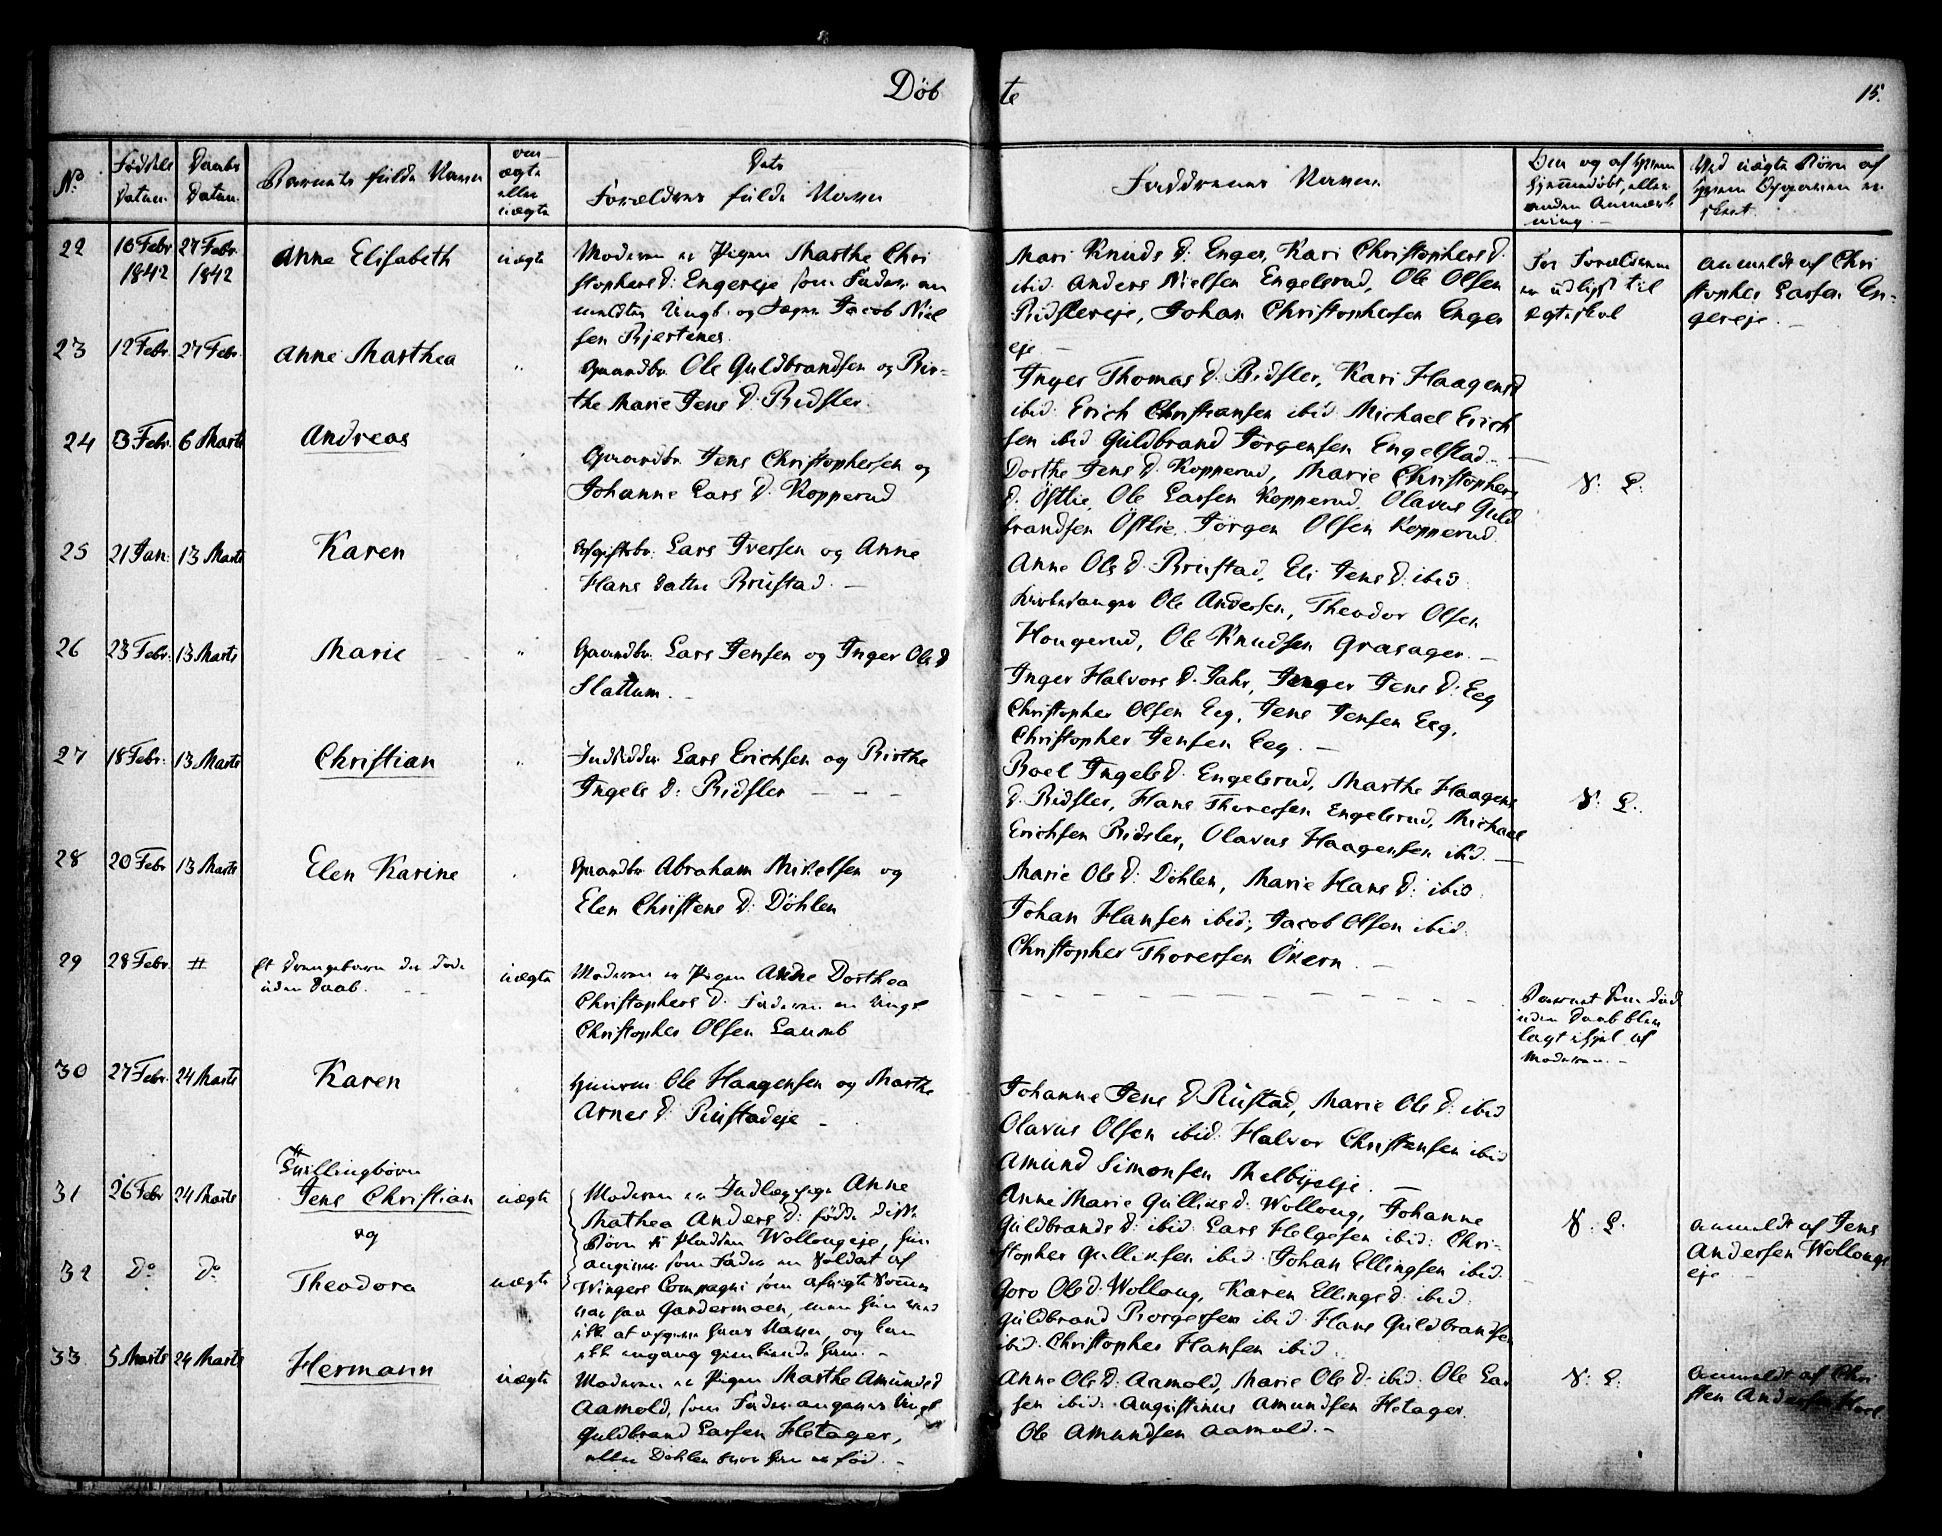 Döb te 15.
No
Fødsels Datum.
Daabs Datum.
Barnets fulde Navn
om ægte eller uægte
Dets Forældres fulde Navn
Faddrenes Navne.
22
10 Febr 1842
27 Febr. 1842
Anne Elisabeth
uægte
Moderen er Pigen Marthe Chri
stophers D: Engereje som Fader an
meldtes Ungk. og Jacob Niel
sen Bjertenes.
Mari Knuds D: Enger, Kari Christophers D.
ibid. Anders Nielsen Engelsrud, Ole Olsen
Ridslereje, Johan Christophersen Enger
eje —
For Forældrene
er udlyst til
Ægteskab
Anmeldt af Chri
stopher Larsen En-
gereje. —
23
12 Febr.
27 Febr.
Anne Marthea
"
Gaardbr. Ole Guldbrandsen og Bir-
the Marie Jens D. Ridsler.
Inger Thomas D. Ridsler, Kari Haagens D
ibid. Erich Christiansen ibid Michael Erich
sen ibid Guldbrand Jörgensen Engelstad. —
24
3 Febr.
6 Marts
Andreas
Gaardbr. Jens Christophersen og
Johanne Lars D. Kopperud
Dorthe Jens D. Kopperud, Marie Christophers
D. Östlie, Ole Larsen Kopperud, Olavus Guld
brandsen Östlie. Jörgen Olsen Kopperud.
V. L.
25
21 Jan.
13 Marts
Karen
Lars Iversen og Anne
Hans Datter Brustad. —
Anne Ols D. Brustad, Eli Jens D. ibid.
Kirkesanger Ole Andersen, Theodor Olsen
Hougerud, Ole Knudsen Grasager. —
26
23 Febr.
13 Marts
Marie
"
Gaardbr. Lars Jensen og Inger Ols D
Slattum. —
Inger Halvors D. Jahr, Inger Jens D. Eeg
Christopher Olsen Eeg, Jens Jensen Eeg.
Christopher Jensen Eeg. —
27
18 Febr.
13 Marts
Christian
Inderster Lars Erichsen og Birthe
Ingels D: Ridsler — — —
Roel Ingels D. Engelsrud, Marthe Haagens
D. Ridsler, Hans Thoresen Engelsrud, Michael
Erichsen Ridsler, Olavus Haagensen ibid. —
V. L.
28
20 Febr
13 Marts
Elen Karine
Gaardbr Abraham Mikelsen og
Elen Christens D: Döhlen
Marie Ols D: Döhlen, Marie Hans D: ibid.
Johan Hansen ibid; Jacob Olsen ibid.
Christopher Thoresen Ökern. —
29
28 Febr.
#
Et Drengebarn der døde
uden Daab.
uægte
Moderen er Pigen Anne Dorthea
Christophers D. Faderen en Ungk
Christopher Olsen Laumb
Barnet som døde
uden Daab blev
lagt ihjel af
Moderen. —
30
27 Febr.
24 Marts
Karen
Huusm Ole Haagensen og Marthe
Arnes D. Rustadeje —
Johanne Jens D. Rustad, Marie Ols D. ibid
Olavus Olsen ibid. Halvor Christensen ibid
Amund Simonsen Melbyeje. —
31
26 Febr
24 Marts
Tvillingbørn
Jens Christian
og
uægte
Moderen er Anne
Mathea Anders D: fødte disse
Børn paa Pladsen Wollougeje, hun
angiver som Fader en Soldat af
Wingers Compagni som afvigte Sommer
var paa Gardermoen, men hun veed
ikke at opgive hans Navn, og kan
ikke engang gjenkjende ham. —
Anne Marie Gullixs D. Wolloug, Johanne
Guldbrands D. ibid. Lars Helgesen ibid. Chri-
stopher Gullixsen ibid. Johan Ellingsen ibid.
V. L.
Anmeldt af Jens
Andersen Wolloug
eje
32
Do
Do
Theodora
uægte
Goro Ols D. Wolloug, Karen Ellings D. ibid.
Guldbrand Borgersen ibid. Hans Guldbrandsen
ibid. Christopher Hansen ibid.
33
5 Marts
24 Marts
Hermann
uægte
Moderen er Pigen Marthe Amunds D
Aamold, som Fader angives Ungk
Guldbrand Larsen Hetager,
eller Döhlen hvor han er fød. —
Anne Ols D. Aamold, Marie Ols D. ibid. Ole Lar
sen ibid. Augustinus Amundsen Hetager.
Ole Amundsen Aamold. —
V. L.
Anmeldt af Chri
sten Andersen